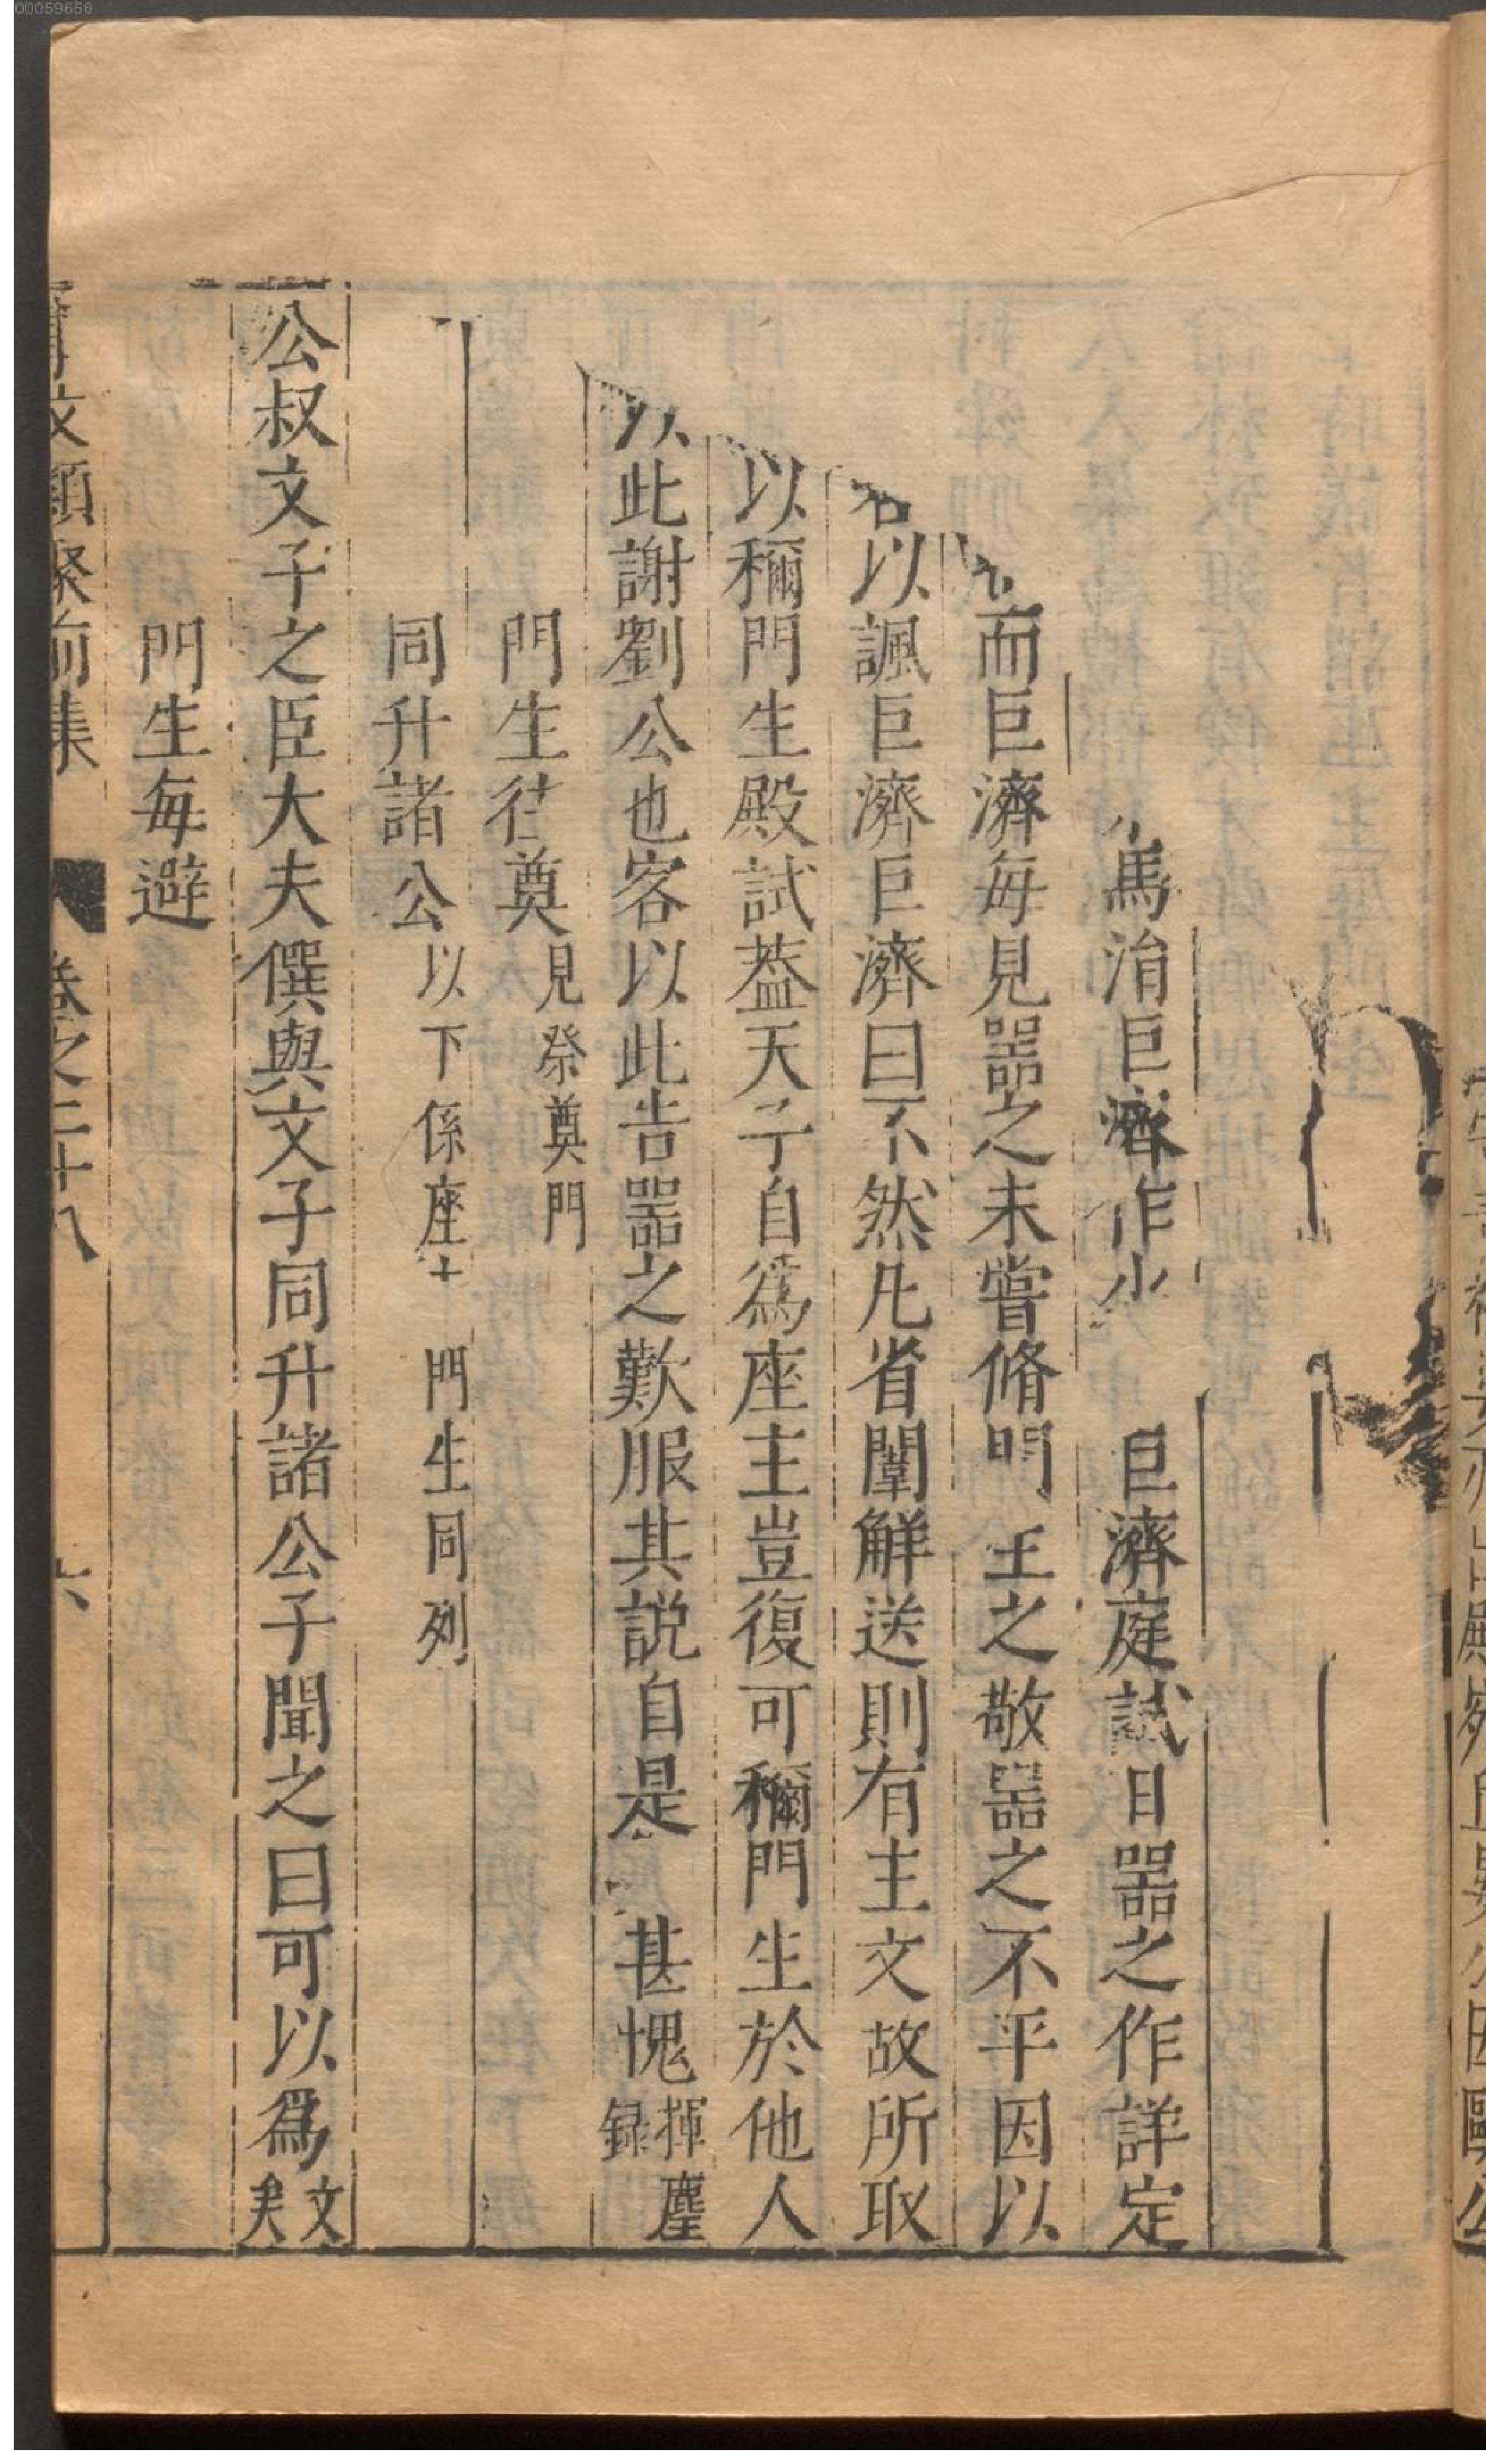 00059656
馬涓巨濟作 巨濟庭試日器之作詳定
而巨濟每見器之未嘗脩門 主之敬器之不平因以
以諷巨濟巨濟曰不然凡省闈解送則有主文故所取
以稱門生殿試葢天子自爲座主豈復可稱門生於他人
以此謝劉公也客以此告器之歎服其説自是 甚愧揮麈録
門生往奠見祭奠門
同升諸公以下係座 門生同列
公叔文子之臣大夫僎與文子同升諸公子聞之曰可以爲文矣
門生每避
文類聚前集 卷之二十八 六